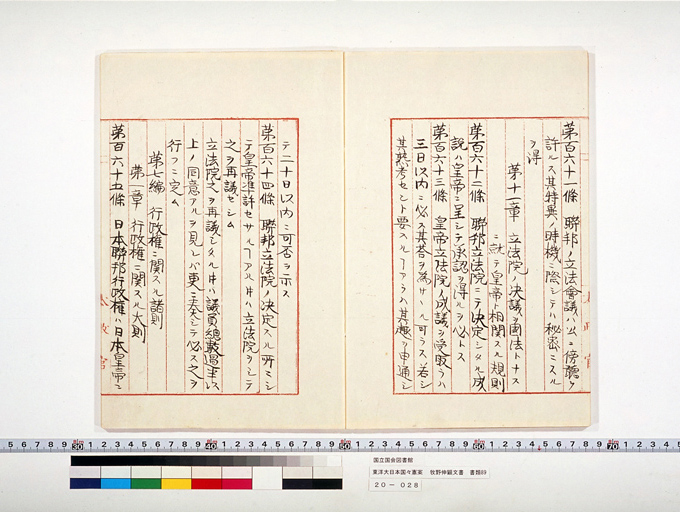 第百六十一條 聯邦ノ立法會議ハ公ニ傍聽ヲ
許ルス其特異ノ時機ニ際シテハ秘密ニスル
ヲ得
第十一章 立法院ノ決議國法トナス
ニ就テ皇帝ト相関スル規則
第百六十二條 聯邦立法院ニテ決定シタル成
説ハ皇帝ニ呈シテ承認ヲ得ルヲ必トス
第百六十三條 皇帝立法院ノ成議ヲ受取ラハ
三日以内ニ必ス其答ヲ為サヽル可ラス若シ
其熟考セント要スルヿアラハ其趣ヲ申通シ
テ二十日以内ニ可否ヲ示ス
第百六十四條 聯邦立法院ノ決定スル所ニシ
テ皇帝準許セサルヿアル时ハ立法院ヲシテ
之ヲ再議セシム
立法院之ヲ再議シタル时ハ議員總數過半以
上ノ同意アルヲ見レバ更ニ奏シテ必ス之ヲ
行フニ定ム
第七編 行政權ニ関スル諸則
第一章 行政權ニ関スル大則
第百六十五條 日本聯邦行政權ハ日本皇帝ニ
太政官
太政官
国立国会図書館
東洋大日本国々憲案 牧野伸顕文書 書類89
20－028